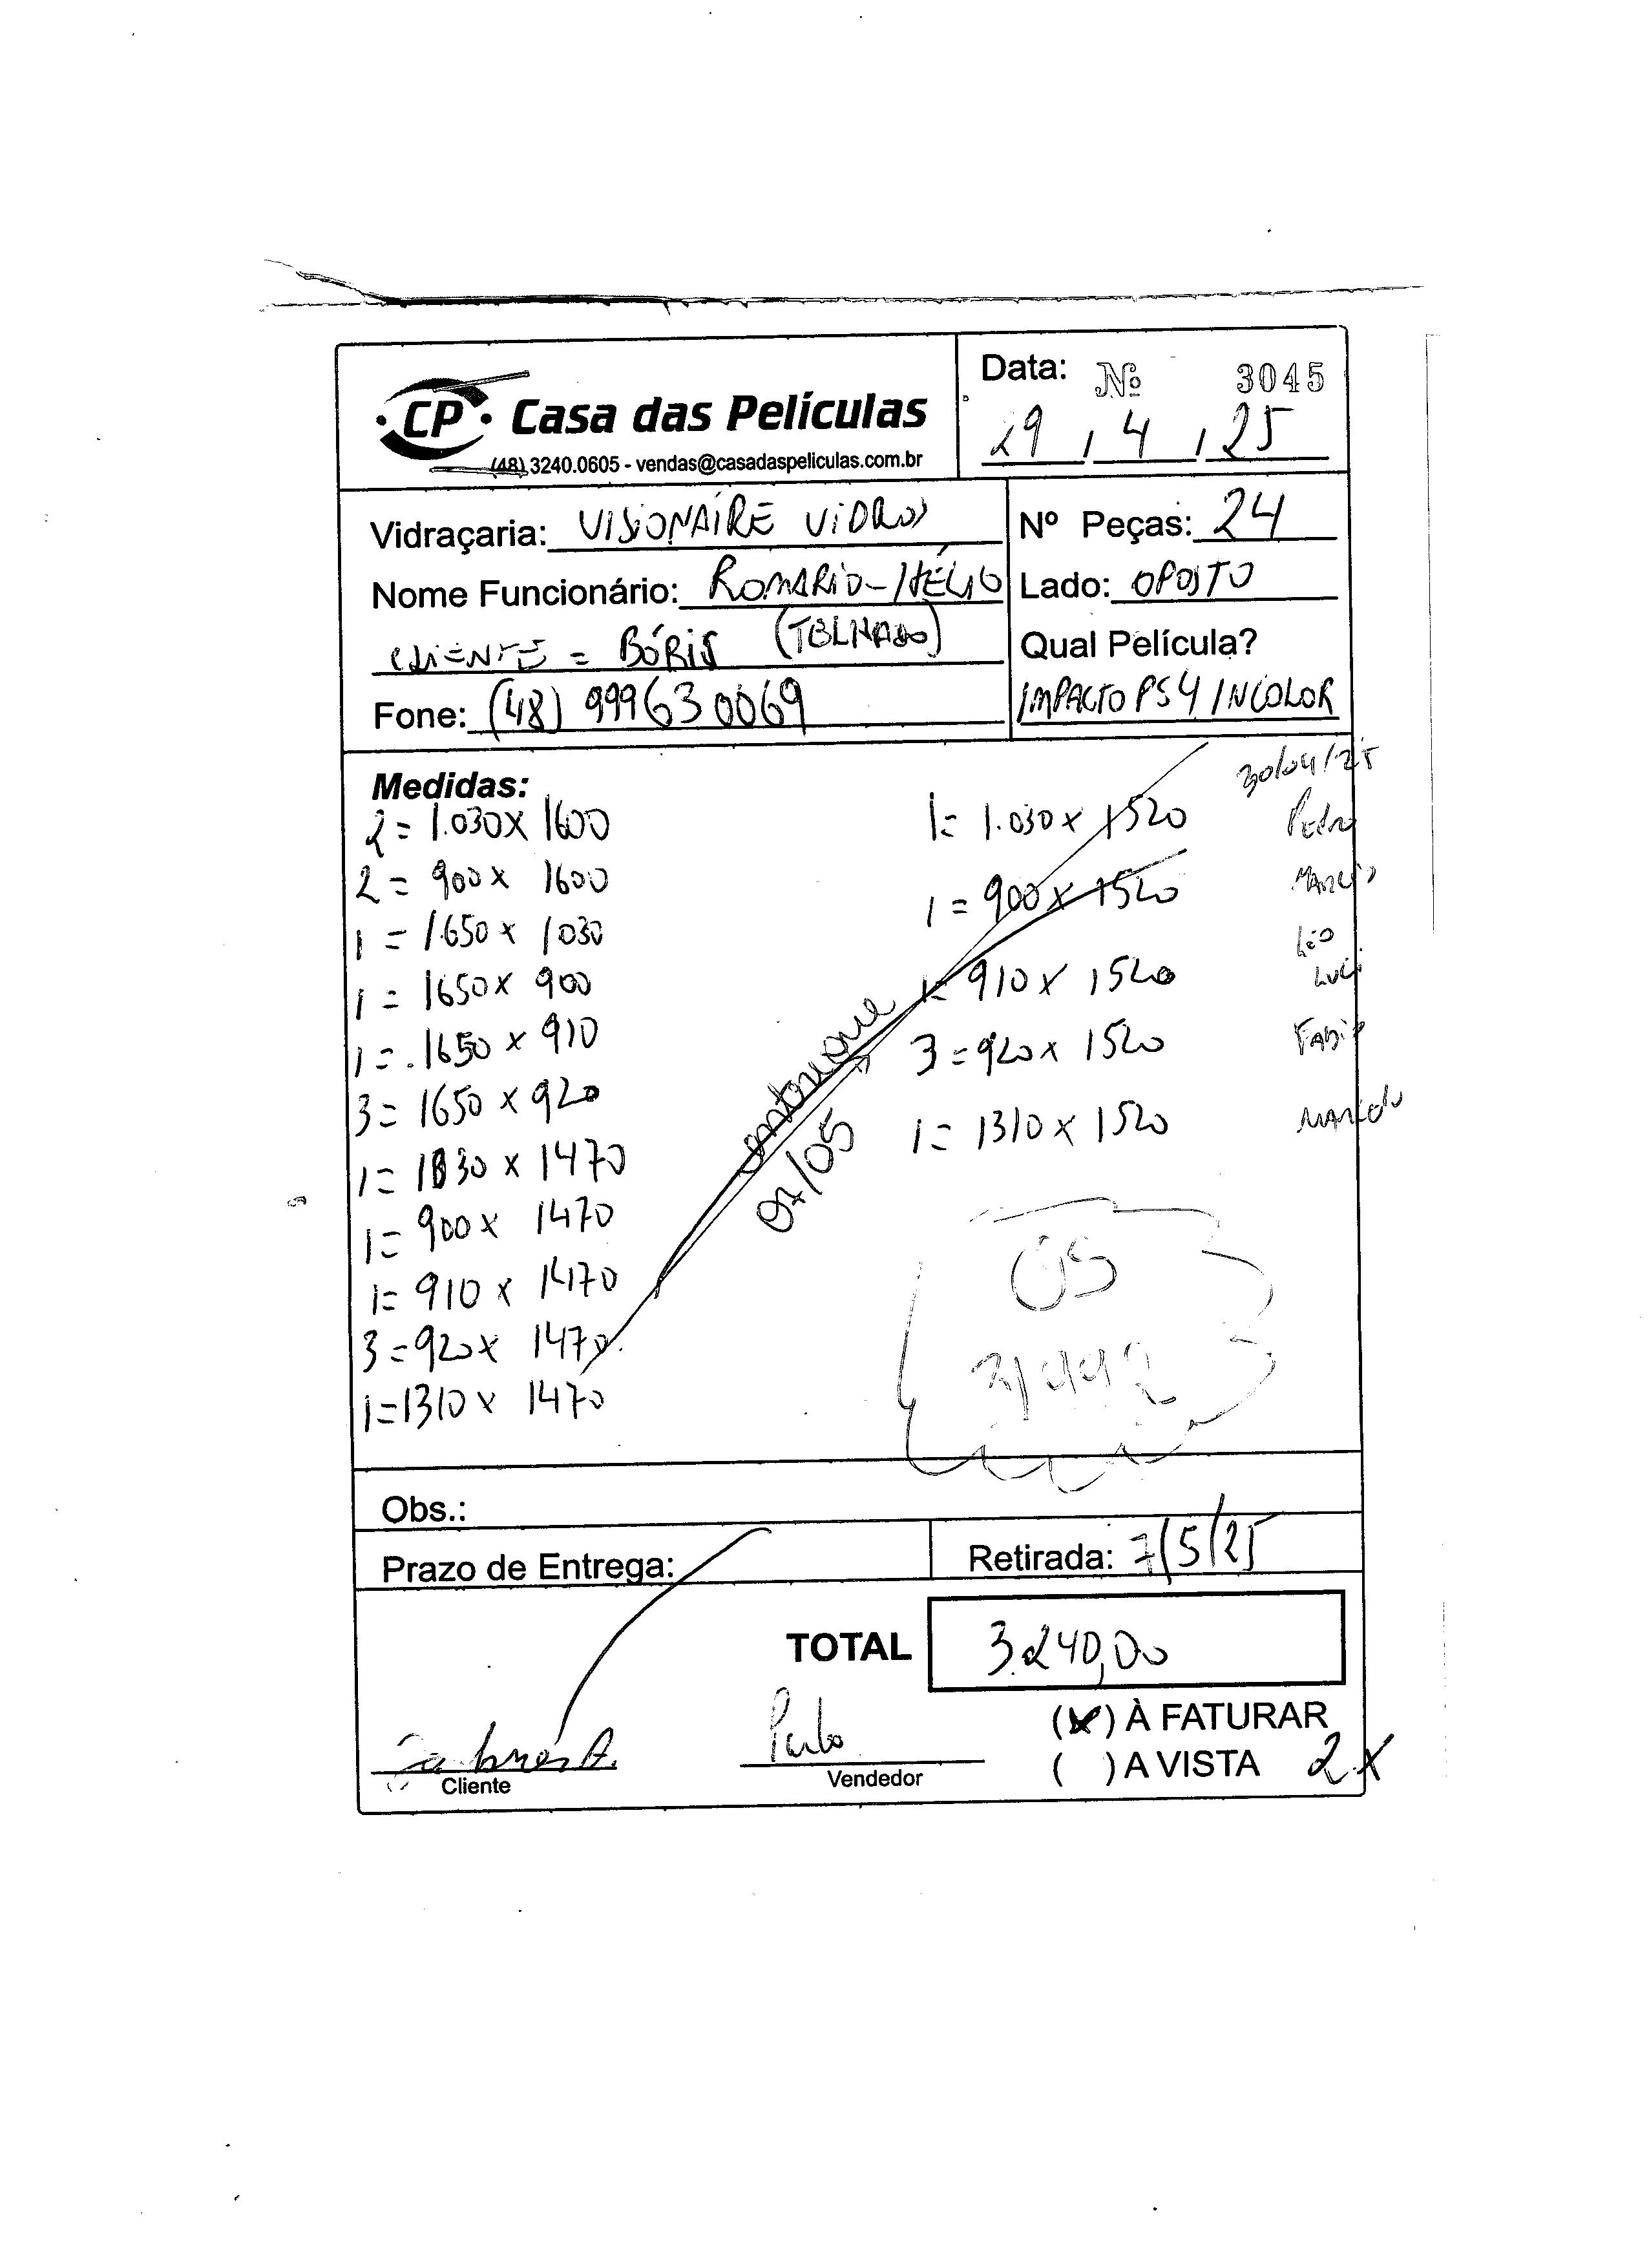 Data: Nº 3045
CP Casa das Películas
29 / 4 / 25
(48) 3240.0605 - vendas@casadaspeliculas.com.br
Vidraçaria: VISIONAIRE VIDROS
Nº Peças: 24
Nome Funcionário: ROMARIO - HÉLIO
Lado: OPOSTO
CLIENTE = BÓRIS (TELHADO)
Qual Película?
Fone: (48) 999630069
IMPACTO PS4 INCOLOR
Medidas:
2 = 1.030 x 1600
2 = 900 x 1600
1 = 1.650 x 1030
1 = 1650 x 900
1 = .1650 x 910
3 = 1650 x 920
1 = 1030 x 1470
1 = 900 x 1470
1 = 910 x 1470
3 = 920 x 1470
1 = 1310 x 1470
1 = 1.030 x 1520
1 = 900 x 1520
1 = 910 x 1520
3 = 920 x 1520
1 = 1310 x 1520
30/04/25
Pedro
Léo
Marcelo
entregue
07/05
OS
31442
Obs.:
Prazo de Entrega:
Retirada: 7/5/25
TOTAL 3.240,00
(x) À FATURAR
( ) A VISTA 2x
Cliente
Vendedor